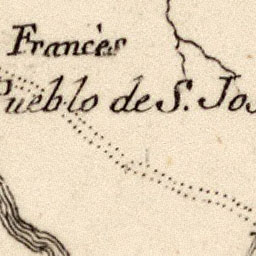 Francès
Pueblo de S. Jos